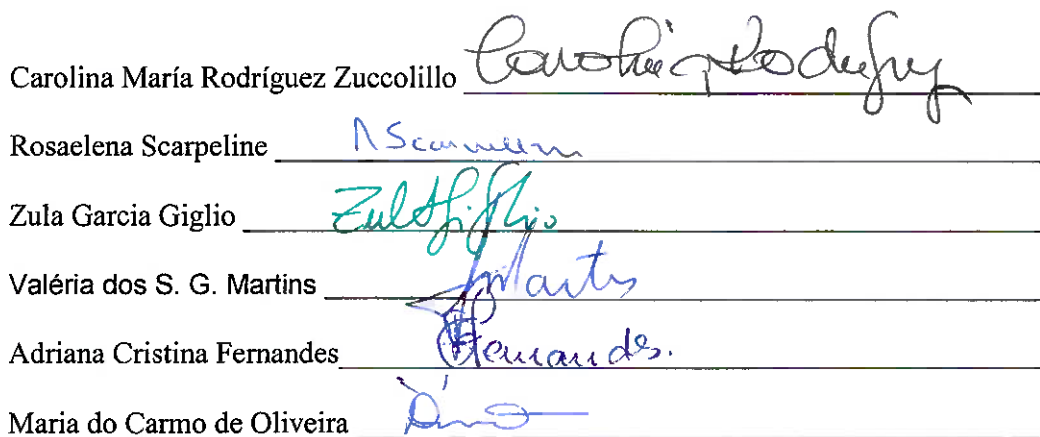 Carolina María Rodríguez Zuccolillo Carolina Rodrí
Rosaelena Scarpeline
Zula Garcia Giglio ZulaGiglio
Valéria dos S. G. Martins Martins
Adriana Cristina Fernandes Fernandes.
Maria do Carmo de Oliveira